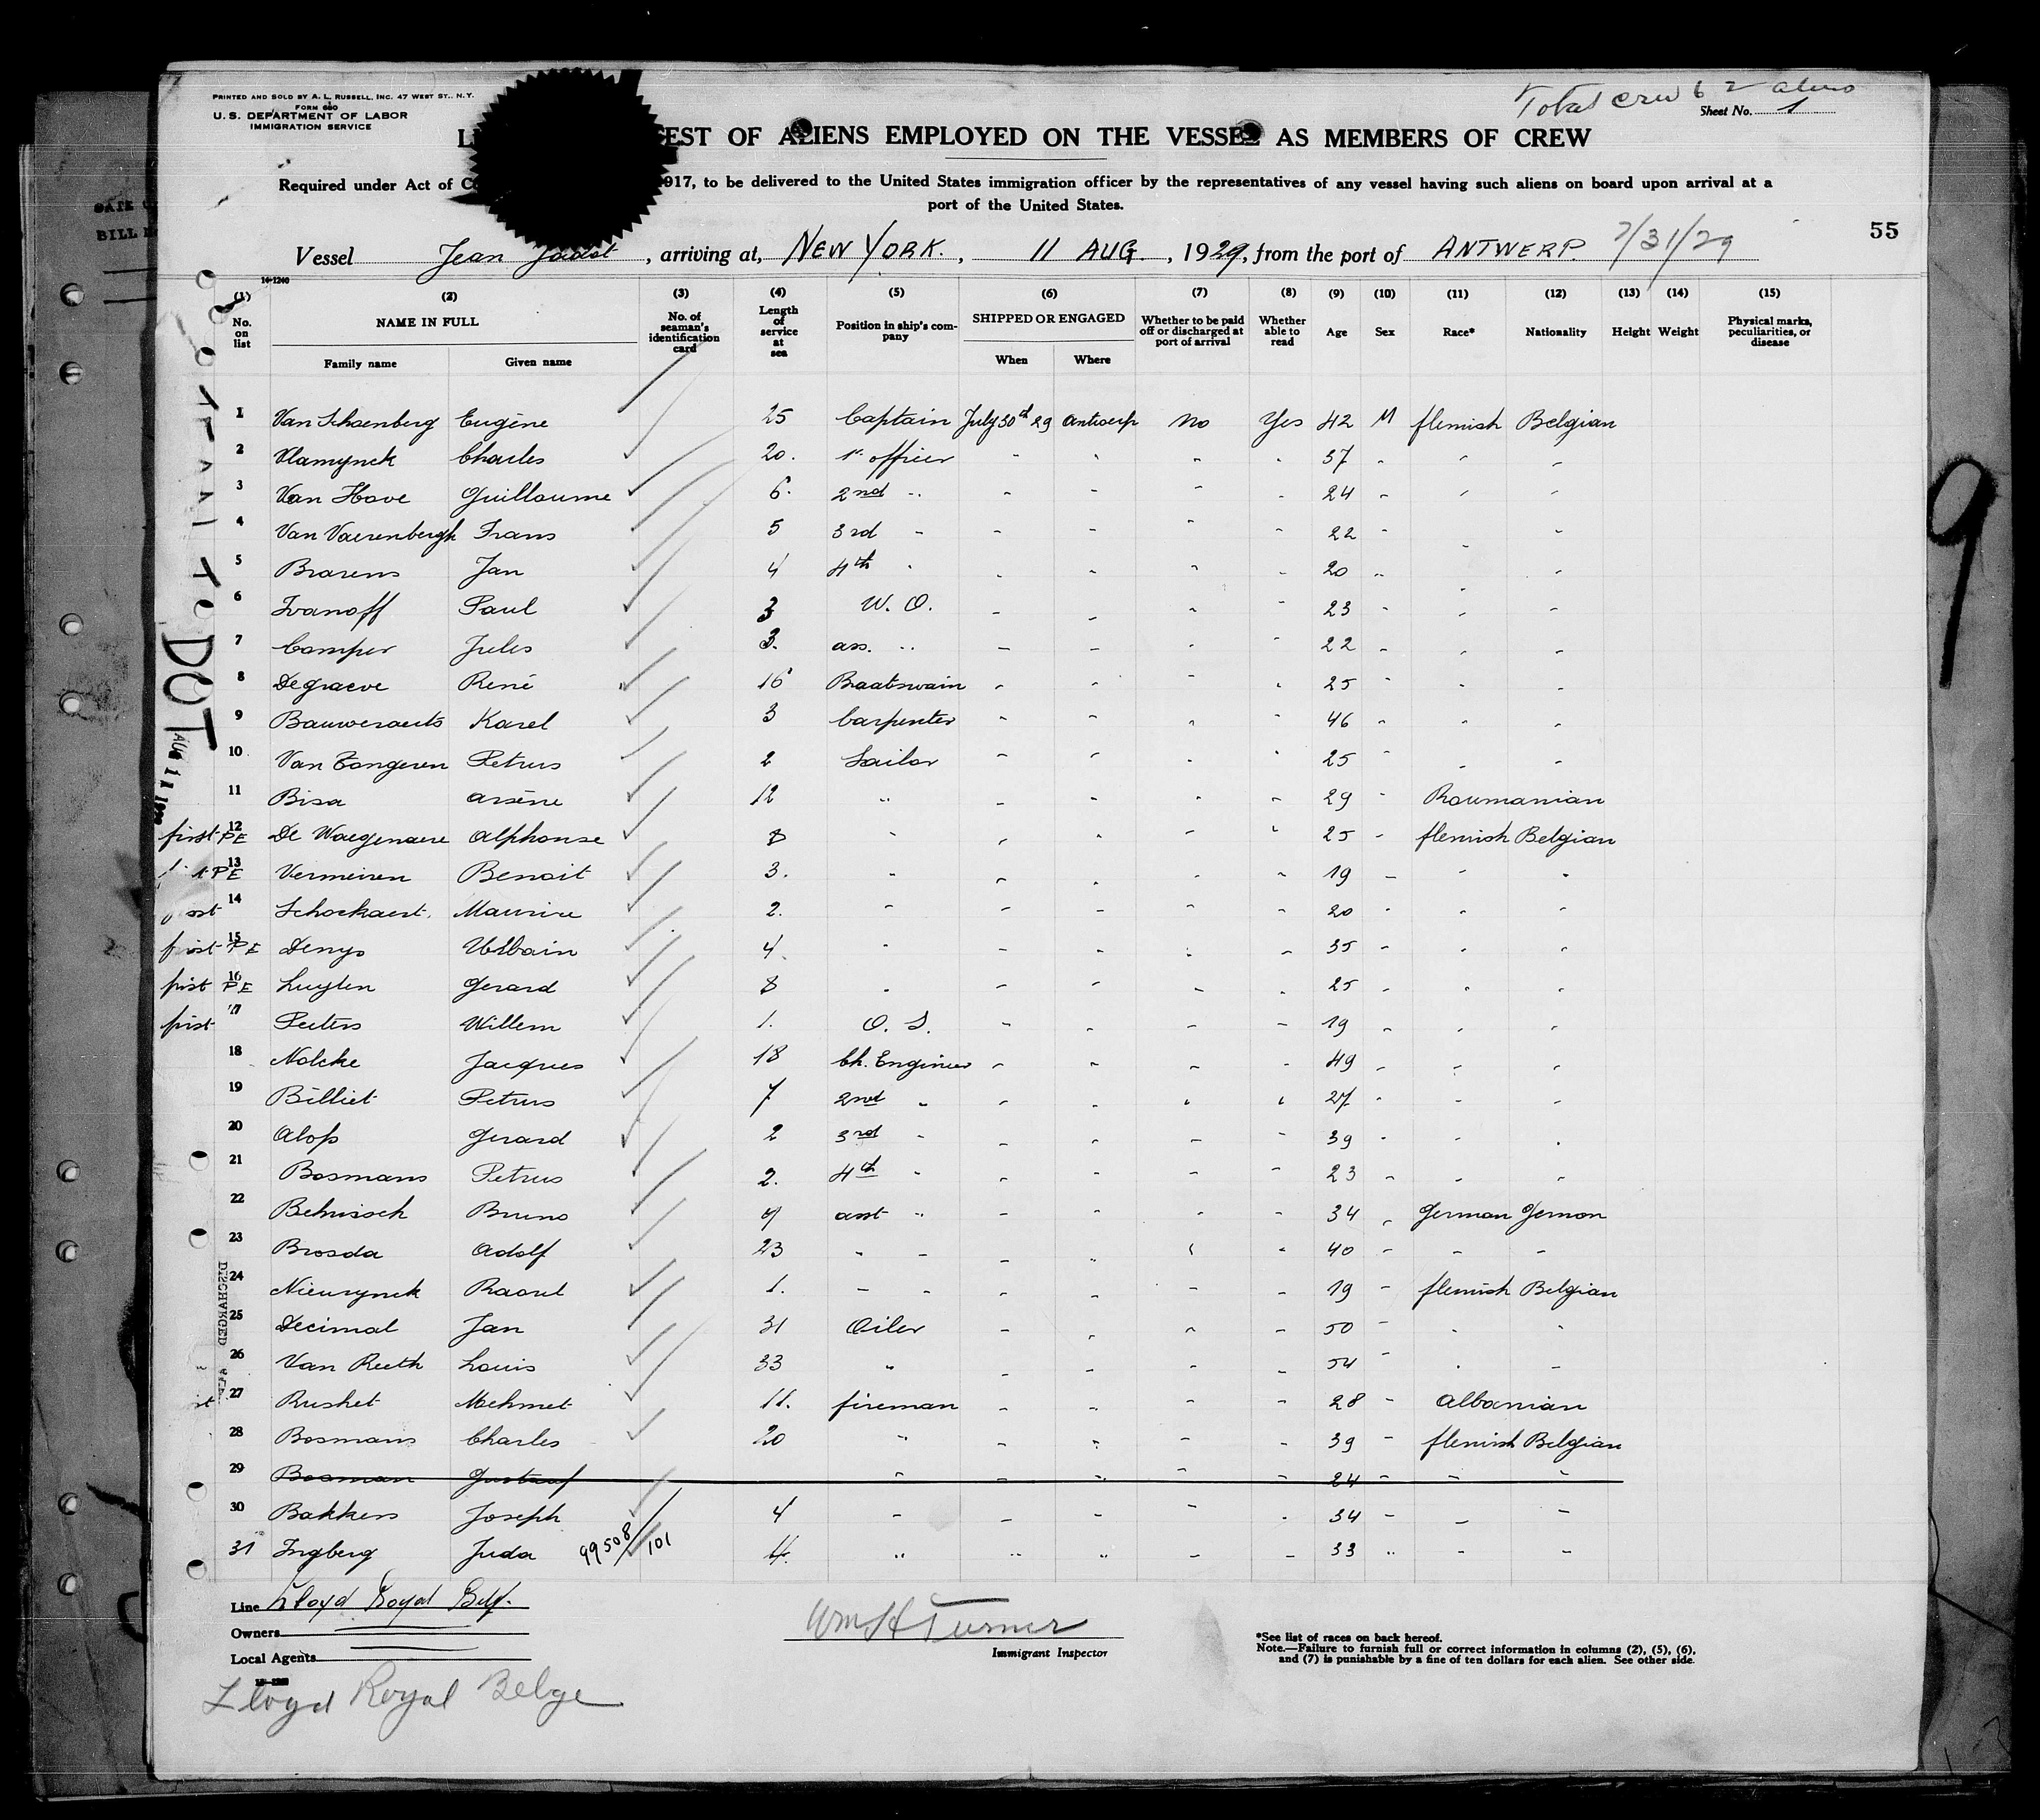 PRINTED AND SOLD BY A. L. RUSSELL, INC. 47 WEST ST., N.Y.
FORM 680
U. S. DEPARTMENT OF LABOR
IMMIGRATION SERVICE
Total crew 62 aliens
Sheet No. 1
EST OF ALIENS EMPLOYED ON THE VESSEL AS MEMBERS OF CREW
Required under Act of C 917, to be delivered to the United States immigration officer by the representatives of any vessel having such aliens on board upon arrival at a
port of the United States.
55
Vessel Jean Jadot, arriving at, NEW YORK., 11 AUG., 1929, from the port of ANTWERP. 7/31/29
14-1240
(1) (2) (3) (4) (5) (6) (7) (8) (9) (10) (11) (12) (13) (14) (15)
No. on list NAME IN FULL No. of seaman's identification card Length of service at sea Position in ship's company SHIPPED OR ENGAGED Whether to be paid off or discharged at port of arrival Whether able to read Age Sex Race* Nationality Height Weight Physical marks, peculiarities, or disease
Family name Given name When Where
1 Van Schoenberg Eugène 25 Captain July 30th 29 Antwerp No Yes 42 M flemish Belgian
2 Vlamynck Charles 20. 1st officer - - - - 37 - - -
3 Van Hove Guillaume 6. 2nd - - - - - 24 - - -
4 Van Vaerenbergh Frans 5 3rd - - - - - 22 - - -
5 Brarens Jan 4 4th - - - - - 20 - - -
6 Ivanoff Paul 3 W. O. - - - - 23 - - -
7 Camper Jules 3. ass. " - - - - 22 - - -
8 Degraeve René 16 Boatswain - - - - 25 - - -
9 Bauweraerts Karel 3 Carpenter - - - - 46 - - -
10 Van Tongeren Petrus 2 Sailor - - - - 25 - - -
11 Bisa Arsène 12 " - - - - 29 - Roumanian
first PE 12 De Waegenaere Alphonse 8 - - - - - 25 - flemish Belgian
PE 13 Vermeiren Benoit 3. - - - - - 19 - - -
14 Schockaert. Maurice 2. - - - - - 20 - - -
first PE 15 Denys Urbain 4. - - - - - 35 - - -
first PE 16 Luyten Gerard 8 - - - - - 25 - - -
first 17 Peeters Willem 1. O. S. - - - - 19 - - -
18 Nolcke Jacques 18 Ch. Engineer - - - - 49 - - -
19 Billiet Petrus 7 2nd - - - - - 27 - - -
20 Alop Gerard 2 3rd - - - - - 39 - - -
21 Bosmans Petrus 2. 4th - - - - - 23 - - -
22 Behnisch Bruno 9 asst - - - - - 34 - German German
23 Brosda Adolf 23 - - - - - - 40 - - -
24 Nieurynck Raoul 1. - - - - - - 19 - flemish Belgian
25 Decimal Jan 31 Oiler - - - - 50 - - -
26 Van Reeth Louis 33 " - - - - 54 - - -
27 Rushet Mehmet 11. fireman - - - - 28 - Albanian
28 Bosmans Charles 20 - - - - - 39 - flemish Belgian
29 Bosman Gustaaf - - - - - 24 - - -
30 Bakkers Joseph 4 - - - - - 34 - - -
31 Ingberg Juda 99508/101 4. " " " - - 33 " - -
DISCHARGED
Line Lloyd Royal Belg.
Owners
Local Agents
Lloyd Royal Belge
Wm H Turner
Immigrant Inspector
*See list of races on back hereof.
Note.—Failure to furnish full or correct information in columns (2), (5), (6),
and (7) is punishable by a fine of ten dollars for each alien. See other side.
DOT
9